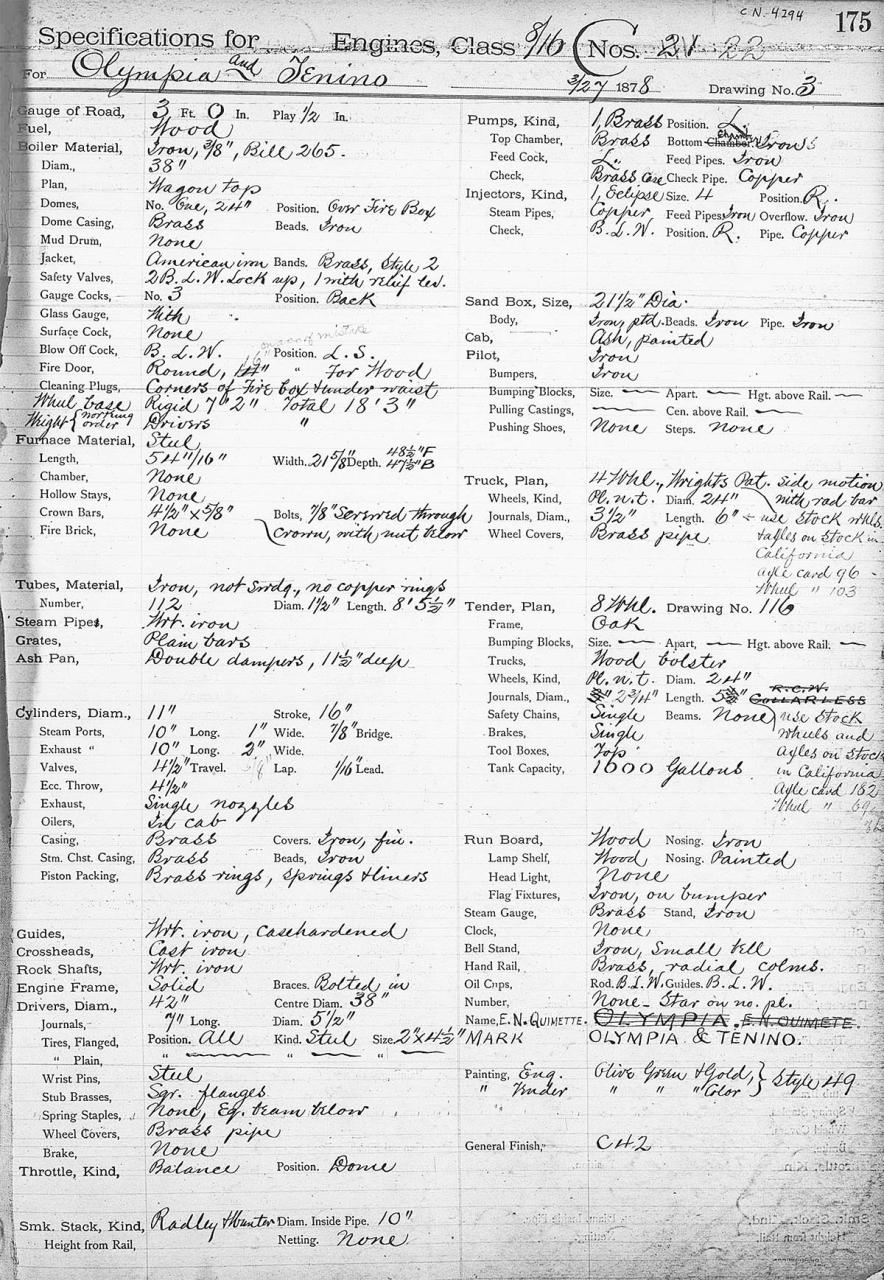 C N. 4294
175
Specifications for Engines, Class 8/16 C Nos. 21 22
For Olympia and Tenino 3/27 1878 Drawing No. 3
Gauge of Road, 3 Ft. 0 In. Play 1/2 In.
Fuel, Wood
Boiler Material, Iron, 3/8", Bill 265.
Diam., 38"
Plan, Wagon top
Domes, No. One, 24" Position. Over Fire Box
Dome Casing, Brass Beads. Iron
Mud Drum, None
Jacket, American iron Bands. Brass, Style 2
Safety Valves, 2 B. L. W. Lock up, 1 with relief lev.
Gauge Cocks, No. 3 Position. Back
Glass Gauge, With
Surface Cock, None
Blow Off Cock, B. L. W. Position. L. S.
Fire Door, Round, 14" 16" " For Wood
Cleaning Plugs, Corners of Fire box & under waist
Wheel base Rigid 7' 2" Total 18' 3"
Weight { working order Drivers "
Furnace Material, Steel
Length, 54 11/16" Width. 21 5/8" Depth. 48 1/2" F 47 1/2" B
Chamber, None
Hollow Stays, None
Crown Bars, 4 1/2" x 5/8" Bolts, 7/8" Screwed through
Fire Brick, None Crown, with nut below
Tubes, Material, Iron, not Swdg., no copper rings
Number, 112 Diam. 1 1/2" Length. 8' 5 1/2"
Steam Pipes, Wrt. iron
Grates, Plain bars
Ash Pan, Double dampers, 11 1/2" deep
Cylinders, Diam., 11" Stroke, 16"
Steam Ports, 10" Long. 1" Wide. 7/8" Bridge.
Exhaust " 10" Long. 2" Wide.
Valves, 4 1/2" Travel. Lap. 1/16" Lead.
Ecc. Throw, 4 1/2"
Exhaust, Single nozzles
Oilers, In cab
Casing, Brass Covers. Iron, fin.
Stm. Chst. Casing, Brass Beads, Iron
Piston Packing, Brass rings, springs & liners
Guides, Wrt. iron, casehardened
Crossheads, Cast iron
Rock Shafts, Wrt. iron
Engine Frame, Solid Braces. Bolted in
Drivers, Diam., 42" Centre Diam. 38"
Journals, 7" Long. Diam. 5 1/2"
Tires, Flanged, Position. All Kind. Steel Size. 2" x 4 1/2"
" Plain, " " "
Wrist Pins, Steel
Stub Brasses, Sqr. flanges
Spring Staples, None, Eq. beam below
Wheel Covers, Brass pipe
Brake, None
Throttle, Kind, Balance Position. Dome
Smk. Stack, Kind, Radley & Hunter Diam. Inside Pipe. 10"
Height from Rail, Netting. None
Pumps, Kind, 1, Brass Position. L.
Top Chamber, Brass Bottom Chamber. Iron
Feed Cock, L. Feed Pipes. Iron
Check, Brass Case Check Pipe. Copper
Injectors, Kind, 1, Eclipse Size. 4 Position. R.
Steam Pipes, Copper Feed Pipes Iron Overflow. Iron
Check, B. L. W. Position. R. Pipe. Copper
Sand Box, Size, 21 1/2" Dia.
Body, Iron, ptd. Beads. Iron Pipe. Iron
Cab, Ash, painted
Pilot, Iron
Bumpers, Iron
Bumping Blocks, Size. — Apart. — Hgt. above Rail. —
Pulling Castings, — Cen. above Rail. —
Pushing Shoes, None Steps. None
Truck, Plan, 4 Whl., Wrights Pat. side motion
Wheels, Kind, Pl. n. t. Diam. 24" with rad bar
Journals, Diam., 3 1/2" Length. 6" use Stock whls.
Wheel Covers, Brass pipe & axles on Stock in
California
axle card 96
Wheel " 103
Tender, Plan, 8 Whl. Drawing No. 116
Frame, Oak
Bumping Blocks, Size. — Apart, — Hgt. above Rail. —
Trucks, Wood bolster
Wheels, Kind, Pl. n. t. Diam. 24"
Journals, Diam., 2 3/4" Length. R.C.W. COLLARLESS
Safety Chains, Single Beams. None use Stock
Brakes, Single Wheels and
Tool Boxes, Top Axles on Stock
Tank Capacity, 1000 Gallons in California
Axle card 182
Wheel " 69
Run Board, Wood Nosing. Iron
Lamp Shelf, Wood Nosing. Painted
Head Light, None
Flag Fixtures, Iron, on bumper
Steam Gauge, Brass Stand, Iron
Clock, None
Bell Stand, Iron, Small bell
Hand Rail, Brass, radial colms.
Oil Cups, Rod. B. L. W. Guides. B. L. W.
Number, None - Star on no. pl.
Name, E. N. QUIMETTE. OLYMPIA. E. N. QUIMETE.
MARK OLYMPIA & TENINO.
Painting, Eng. Olive Green & Gold, } Style 49
" Tender " " " Color
General Finish, C 42